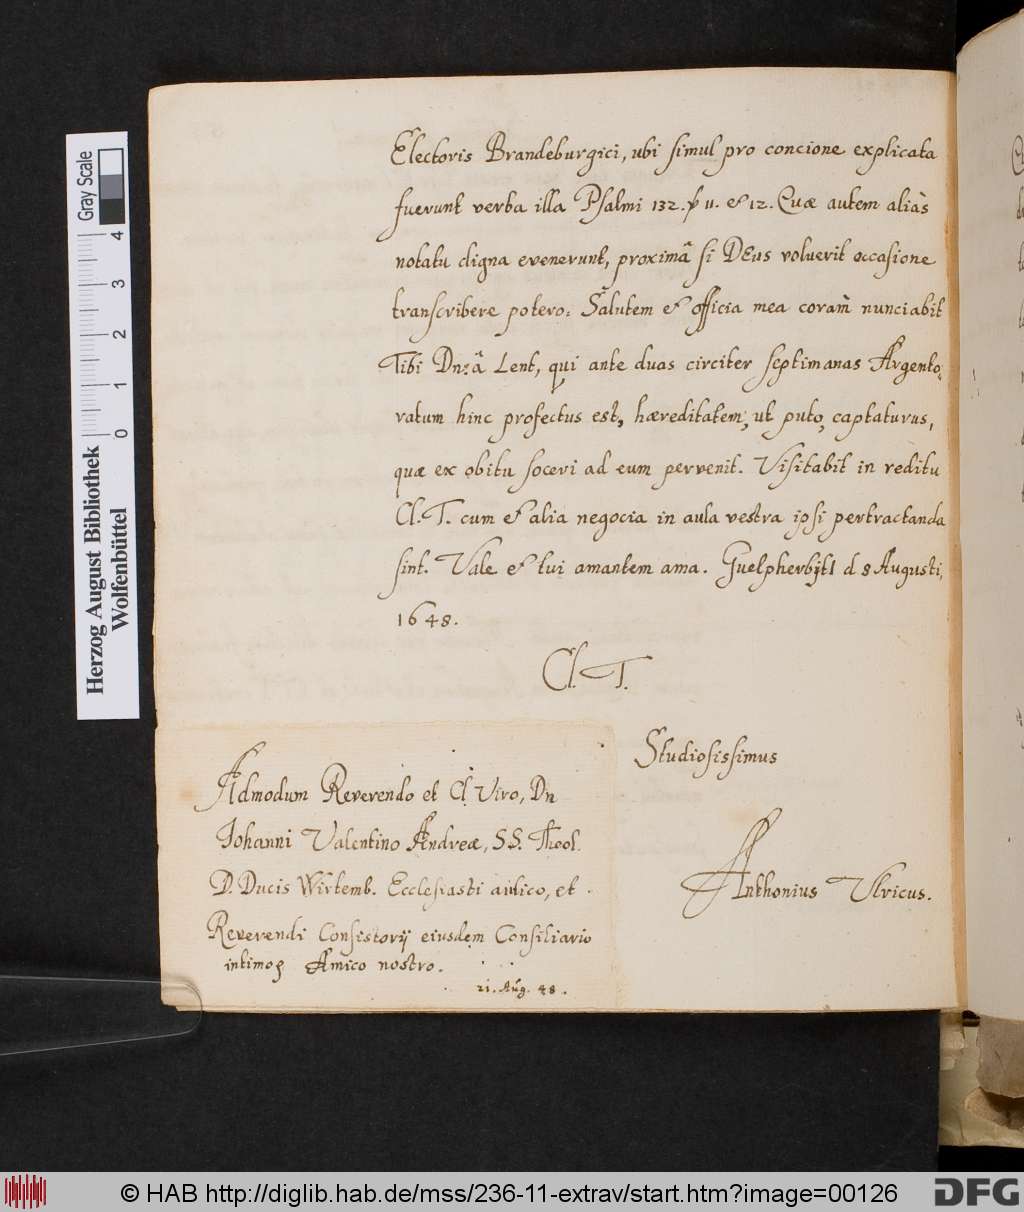 Electoris Brandeburgici, ubi simul pro concione explicata
fuerunt verba illa Psalmi 132. ꝟ 11. & 12. Quæ autem aliàs
notatu digna evenerunt, proximâ si DEus voluerit occasione
transcribere potero. Salutem & officia mea coram nunciabit
Tibi Dn. à Lent, qui ante duas circiter septimanas Argento,
ratum hinc profectus est, hæreditatem, ut puto, captaturus,
quæ ex obitu soceri ad eum pervenit. Visitabit in reditu
Cl. T. cum & alia negocia in aula vestra ipsi pertractanda
sint. Vale & tui amantem ama. Guelpherbyti d 8 Augusti,
1648.
Cl. T.
Studiosissimus
Anthonius Ulricus.
Admodum Reverendo et Cl. Viro, Dn
Johanni Valentino Andreæ, SS. Theol.
D. Ducis Wirtemb. Ecclesiasti aulico, et
Reverendi Consistorij eiusdem Consiliario
intimo, Amico nostro.
21. Aug. 48.
Herzog August Bibliothek
Wolfenbüttel
Gray Scale
0 1 2 3 4
© HAB http://diglib.hab.de/mss/236-11-extrav/start.htm?image=00126
DFG